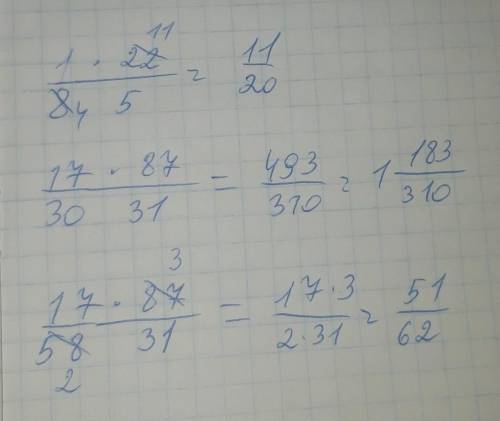 11
1 · 22
8 4 5 = 11/20
17 · 87
30 31 = 493/310 = 1 183/310
3
17 · 87
58 31 = 17·3/2·31 = 51/62
2